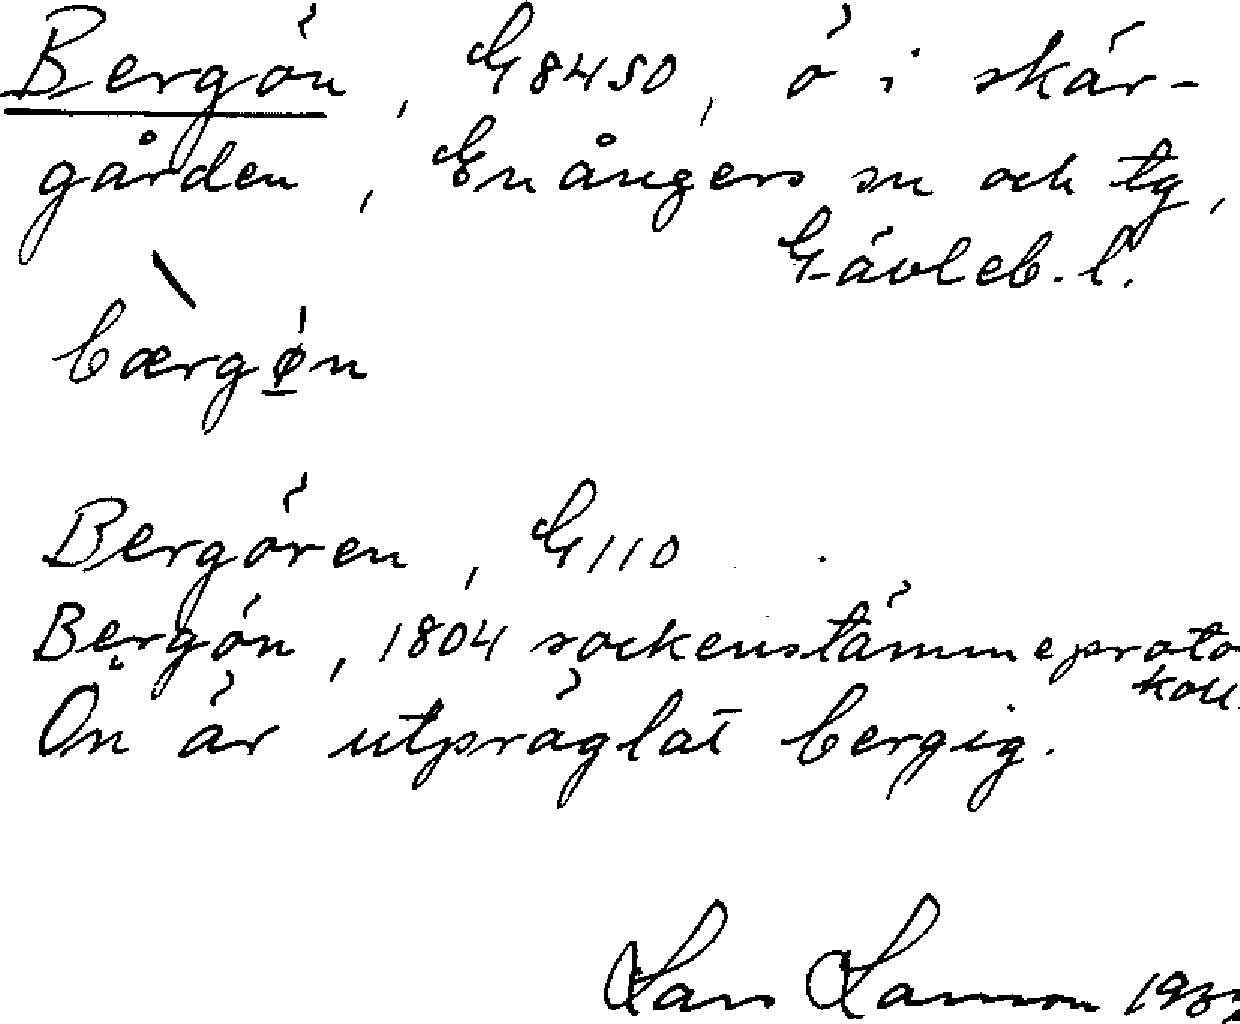 Bergön, G8450, ö i skär-
gården, Enångers sn och tg,
Gävleb. l.
bærgø̱n
Bergören, G110
Bergön, 1804 sockenstämmeproto
koll.
Ön är utpräglat bergig.
Lars Larsson